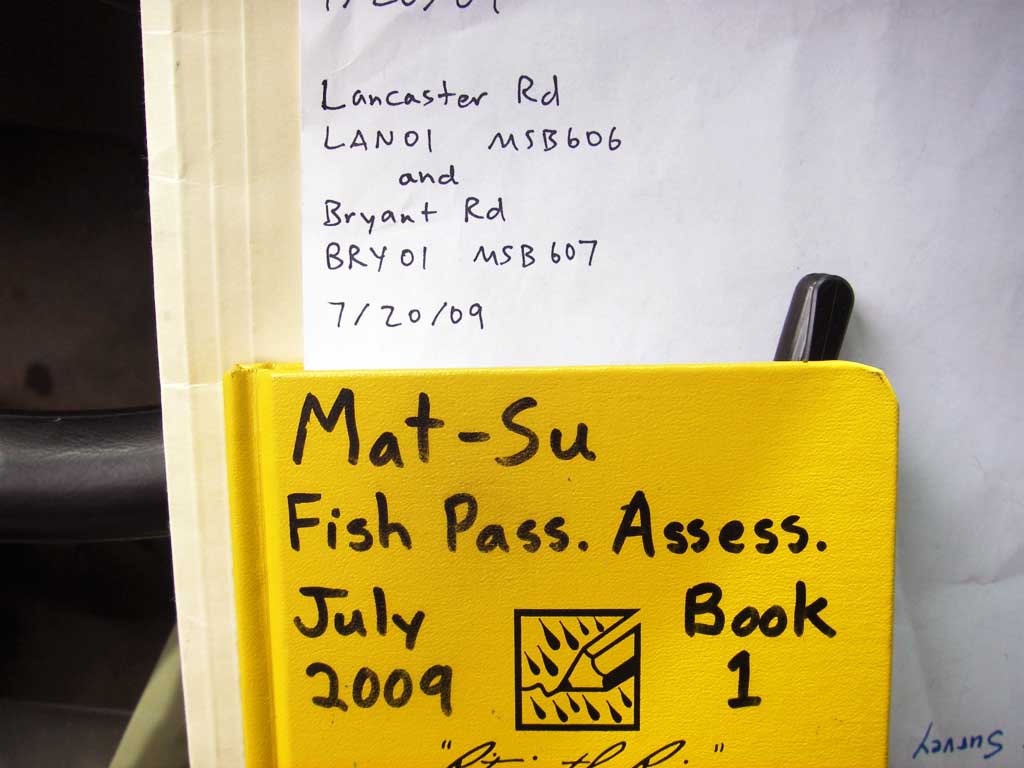 7/20/09
Lancaster Rd
LAN01 MSB606
and
Bryant Rd
BRY01 MSB607
7/20/09
Mat-Su
Fish Pass. Assess.
July
2009
Book
1
Survey